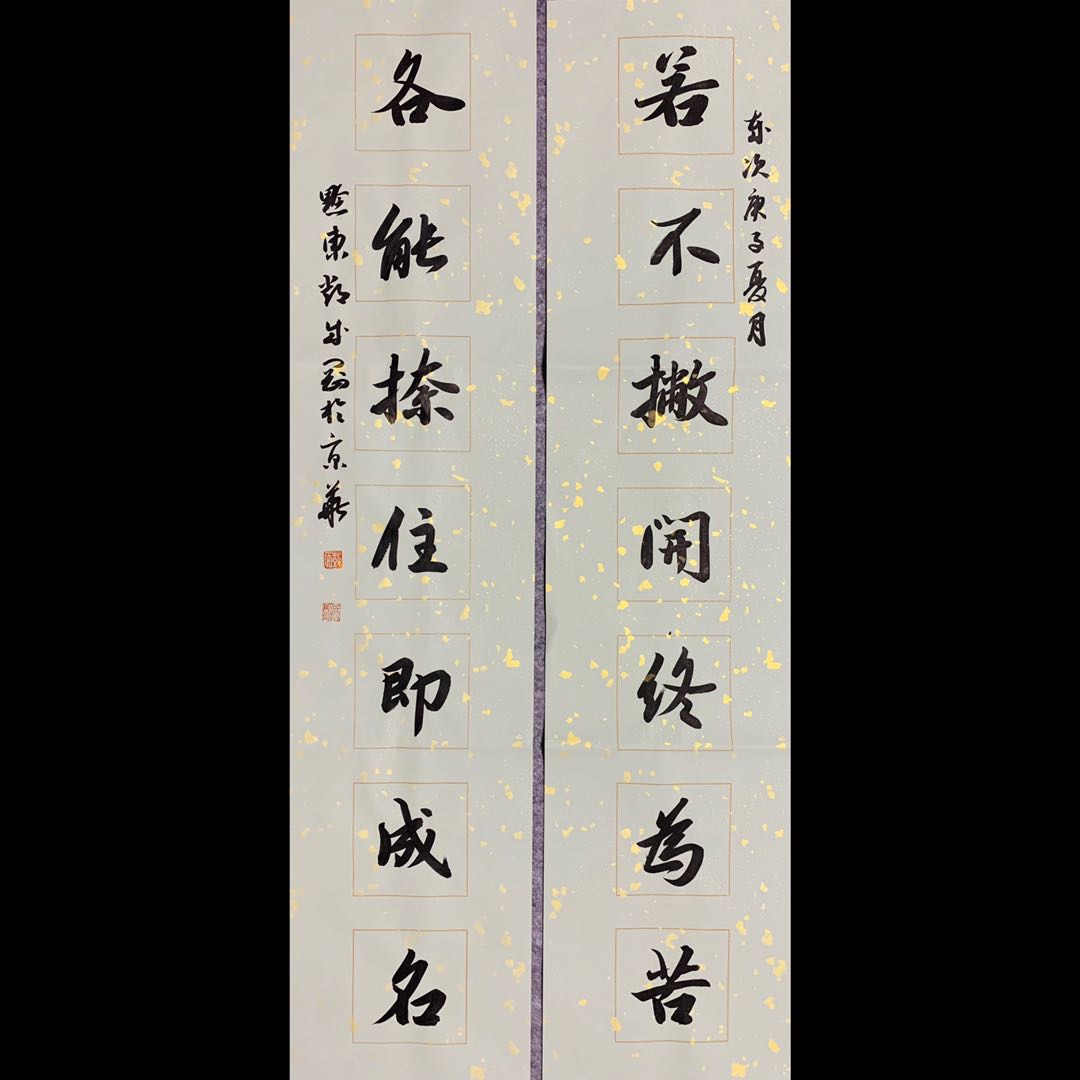 岁次庚子夏月
若不撇開终為苦
各能捺住即成名
黔東鄧成剛於京華